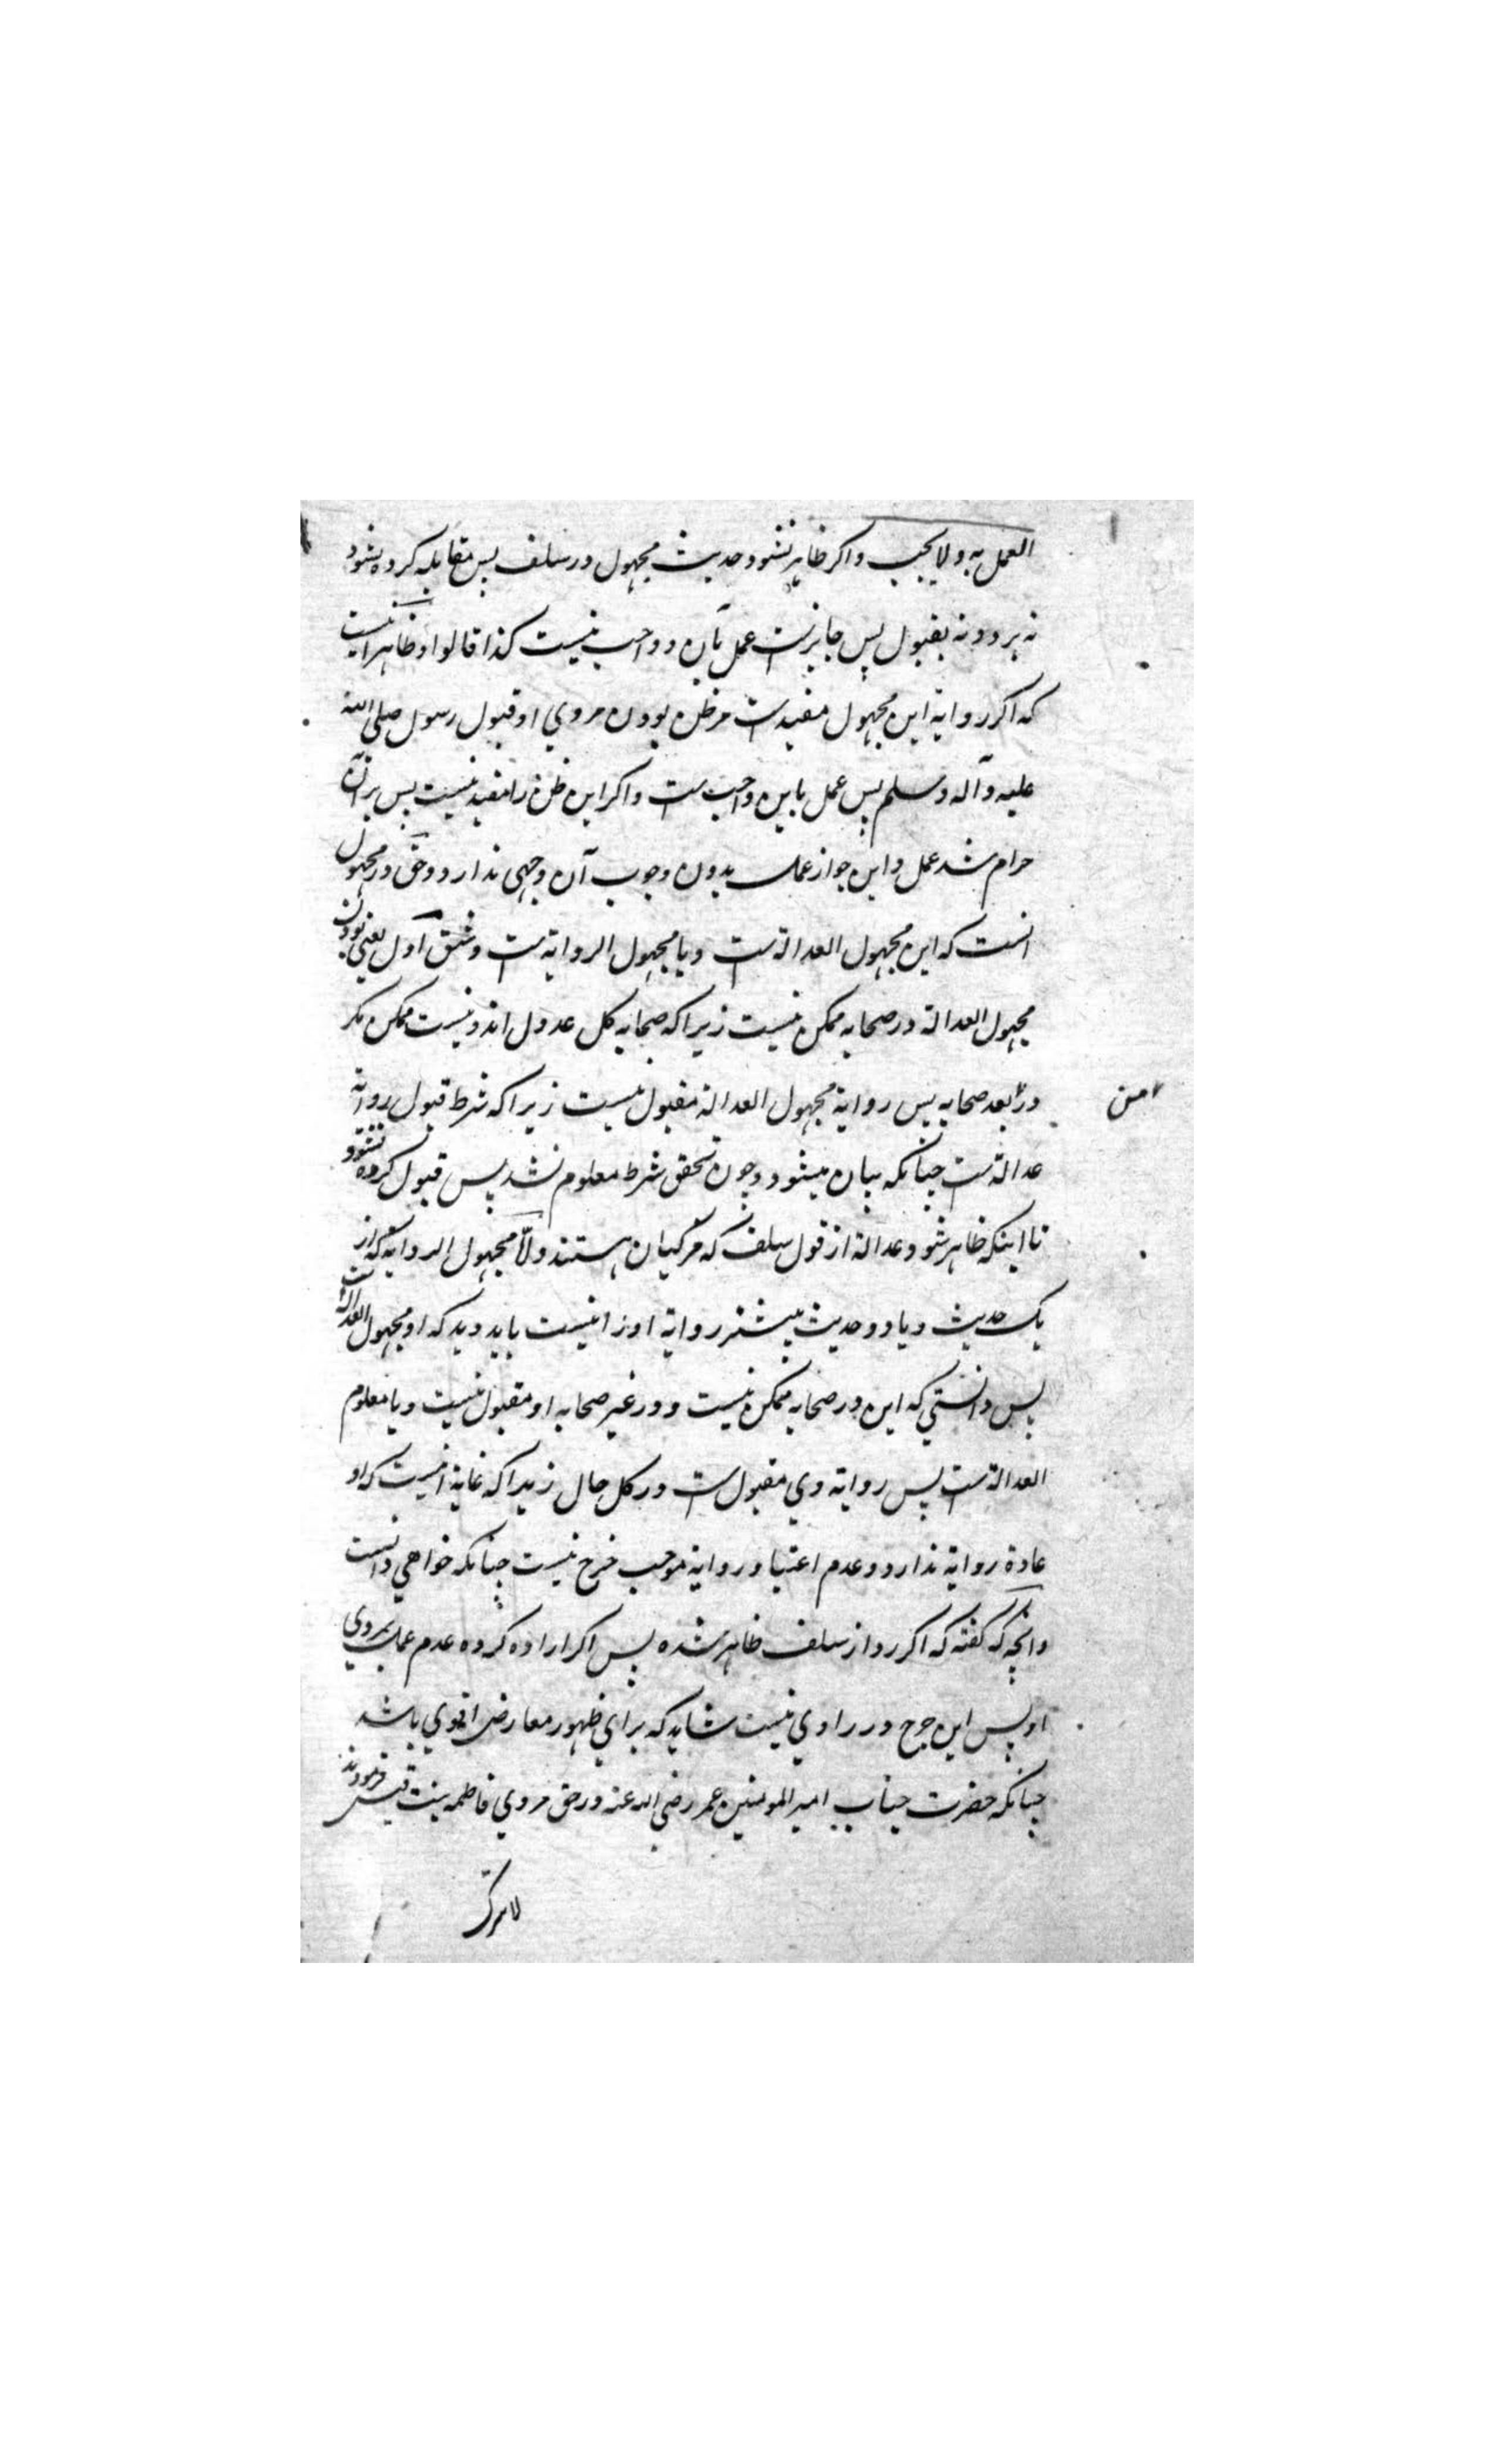 العمل به ولا یجب واکر ظاهر نشود حدیث مجهول در سلف پس مقابله کرده نشود
نه برد و نه بقبول پس جایزست عمل بآن و واجب نیست کذا قالوا و ظاهر انیست
که اکر روایة این مجهول مفیدست مر ظن بودن مروي او قبول رسول صلی الله
علیه وآله وسلم پس عمل باین واجب ست واکر این ظن را مفید نیست پس بر آن
حرام شد عمل و این جواز عمل بدون وجوب آن وجهی ندارد وحق در مجهول
انست که این مجهول العدالة ست ویا مجهول الروایة ست وشق اول یعنی بودن
مجهول العدالة در صحابه ممکن نیست زیرا که صحابه کل عدول اند ونیست ممکن مکر
در بعد صحابه پس روایة مجهول العدالة مقبول نیست زیرا که شرط قبول روایة
من
عدالة ست چنانکه بیان میشود وچون تحقق شرط معلوم نشد پس قبول کرده نشود
تا اینکه ظاهر شود عدالة از قول سلف که مزکیان هستند ولا مجهول الروایة که از
یک حدیث ویا دو حدیث بیشتر روایة اوزا نیست باید دید که او مجهول العدالة ست
پس دانستي که این در صحابه ممکن نیست ودر غیر صحابه او مقبول نیست ویا معلوم
العدالة ست پس روایة وي مقبول ست در کل حال زیرا که غایة انیست که او
عادة روایة ندارد وعدم اعتیاد روایة موجب جرح نیست چنانکه خواهي دانست
وانچه که کفته که اکر رد از سلف ظاهر شده پس اکر اراده کرده عدم عمل بمروي
او پس این جرح در راوي نیست شاید که براي ظهور معارض اقوي باشد
چنانکه حضرت جناب امیر المومنین عمر رضي الله عنه در حق مروي فاطمه بنت قیس فرمودند
لا نترک